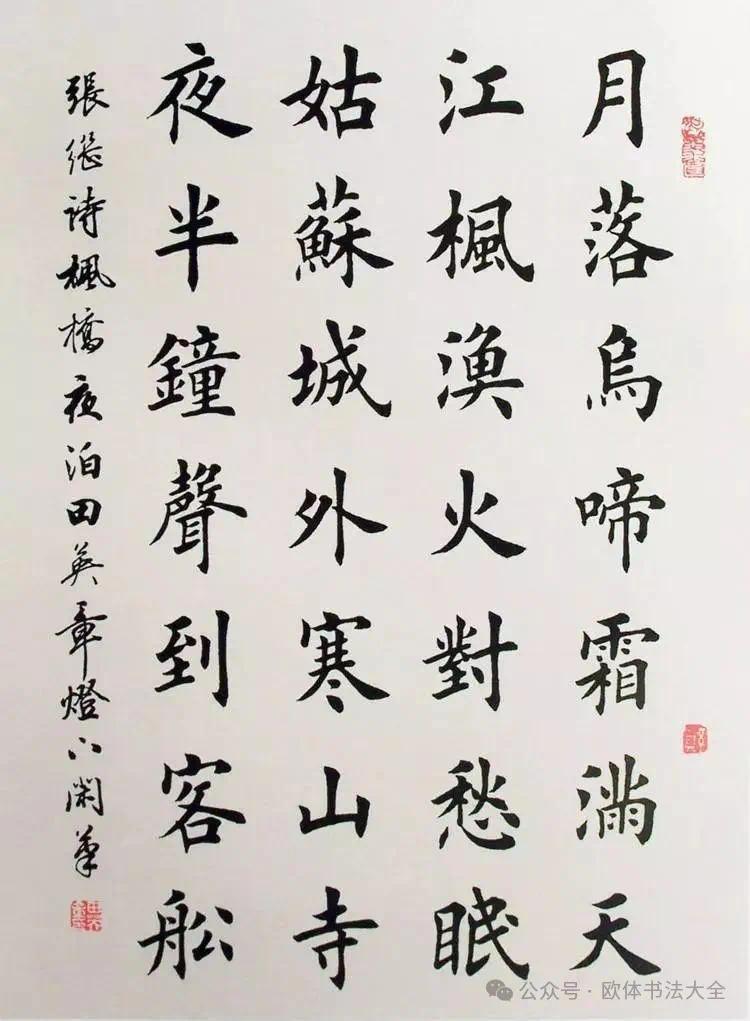 月落烏啼霜滿天
江楓漁火對愁眠
姑蘇城外寒山寺
夜半鐘聲到客船
張繼詩楓橋夜泊田英章燈下閑筆
公众号·欧体书法大全